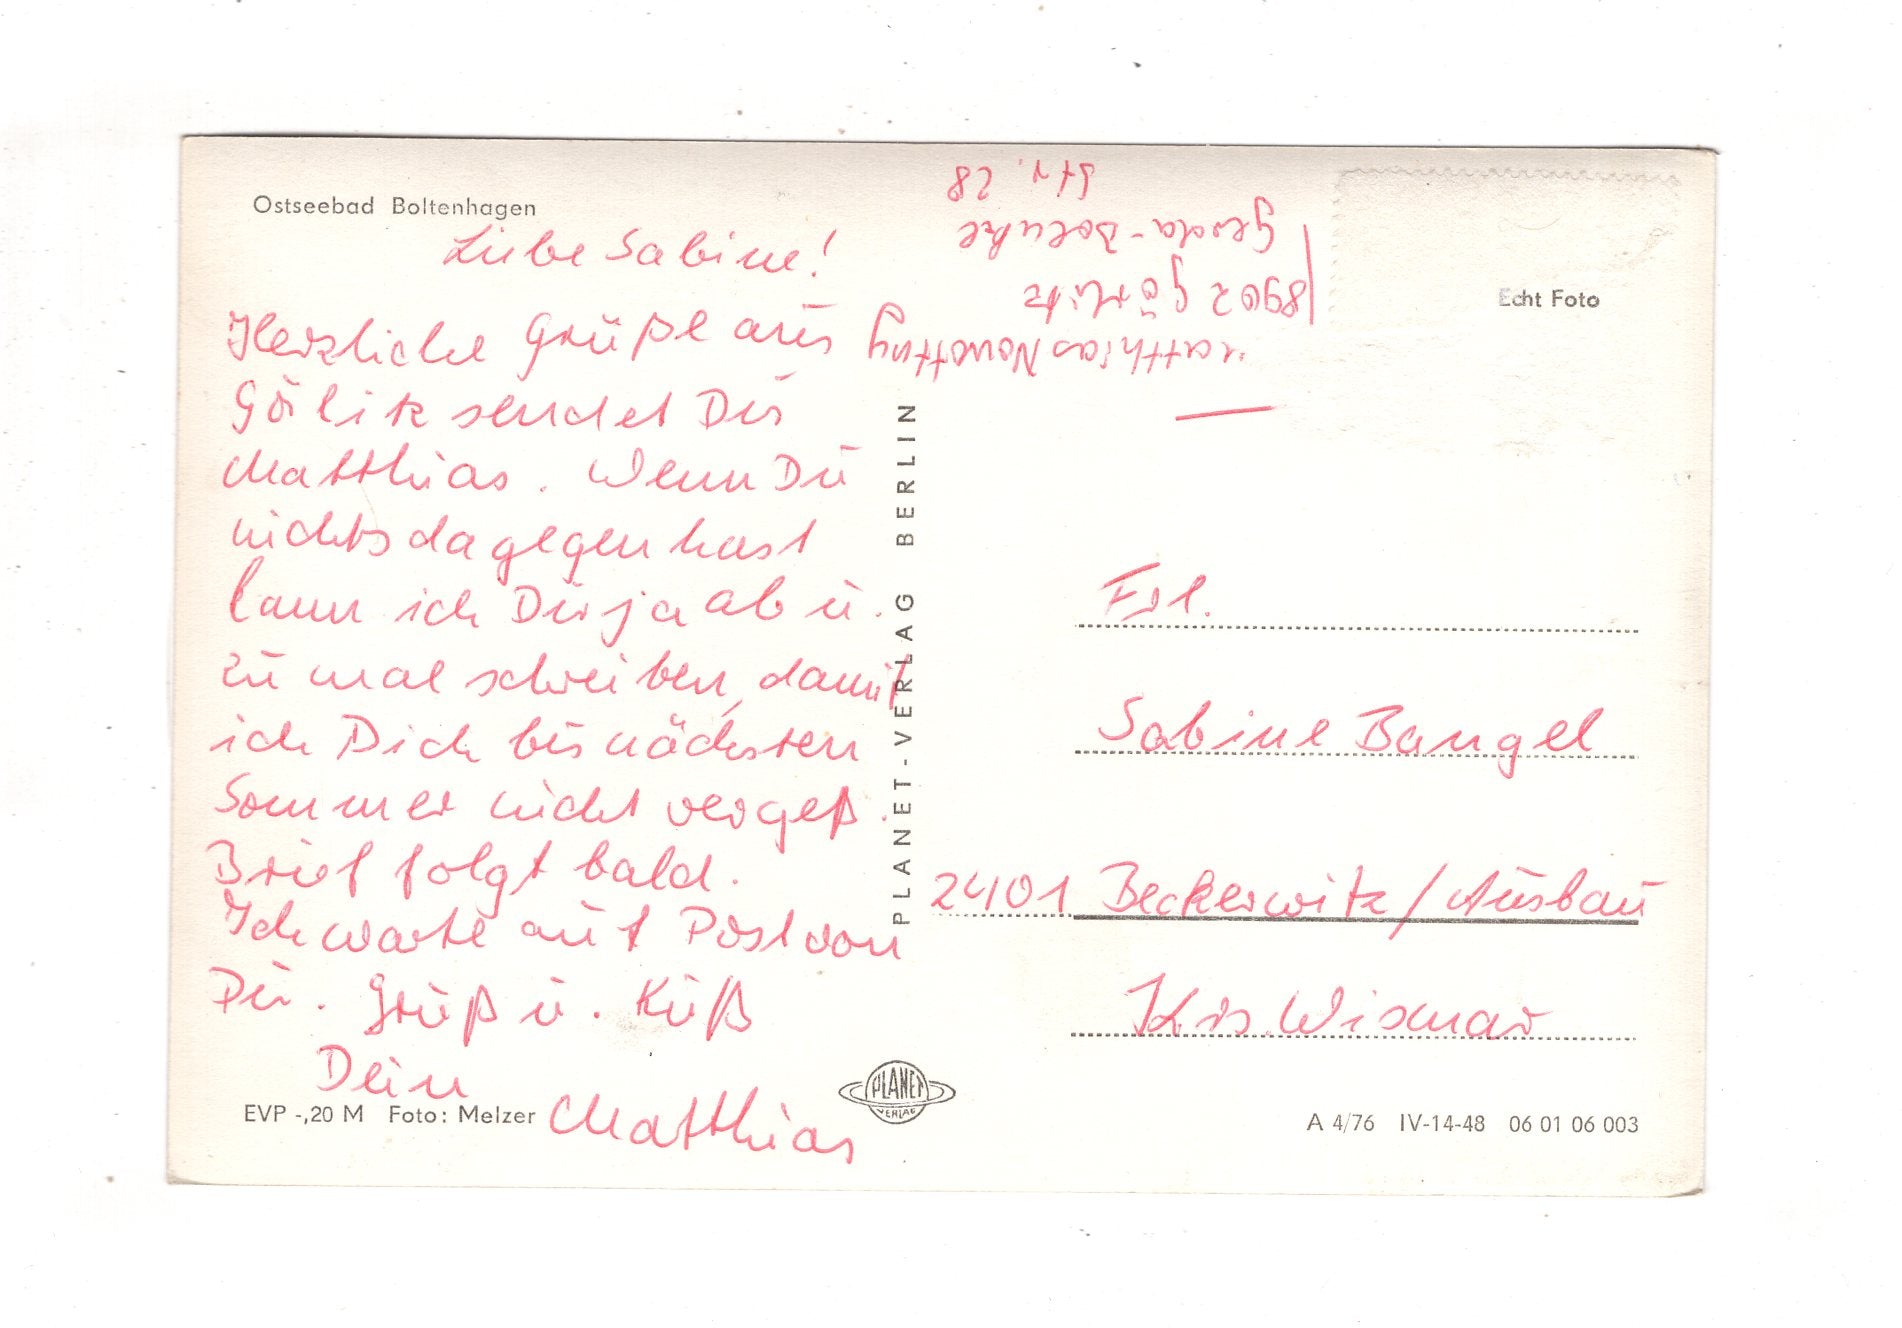 Ostseebad Boltenhagen
Liebe Sabine!
Herzliche Grüße aus
Görlitz sendet Dir
Matthias. Wenn Du
nichts dagegen hast
kann ich Dir ja ab u.
zu mal schreiben, damit
ich Dich bis nächsten
Sommer nicht vergeß.
Brief folgt bald.
Ich warte auf Post von
Dir. Gruß u. Kuß
Dein
Matthias
EVP -,20 M Foto: Melzer
PLANET-VERLAG BERLIN
PLANET
VERLAG
Matthias Nowottny
8902 Görlitz
Gerda-Boenke
Str. 28
Echt Foto
Frl.
Sabine Bangel
2401 Beckerwitz/Ausbau
Krs. Wismar
A 4/76 IV-14-48 06 01 06 003